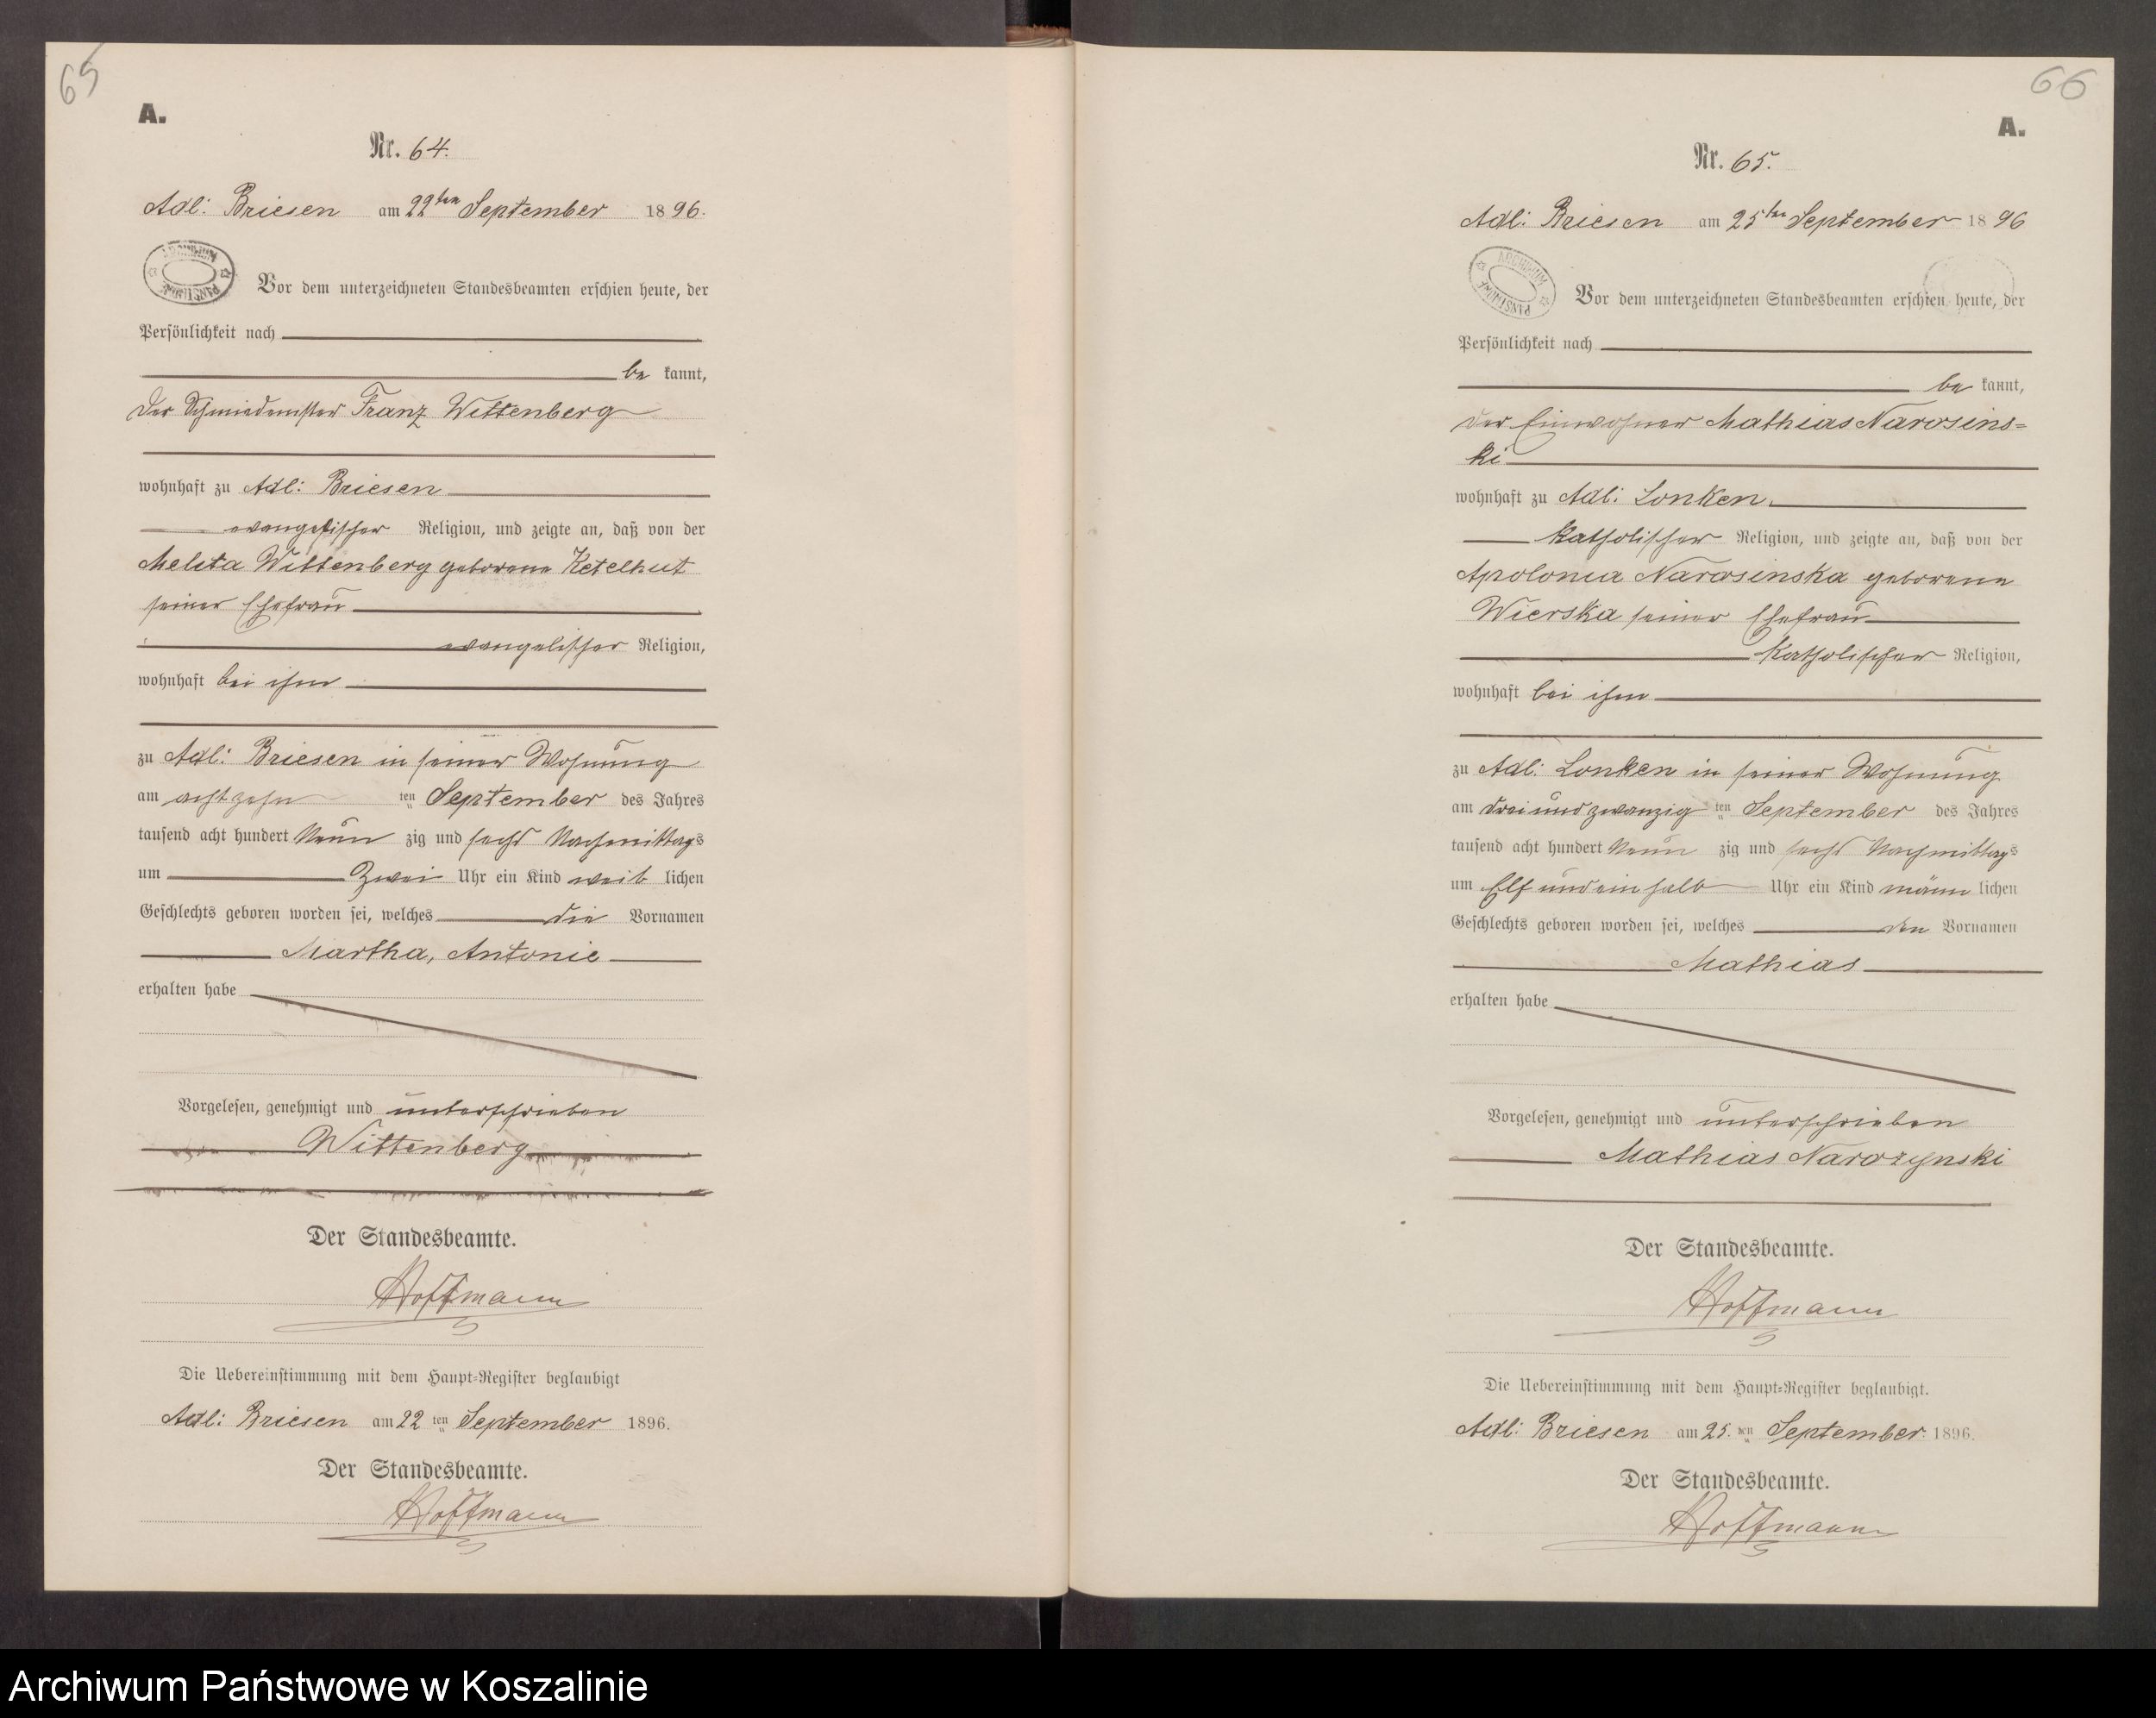 65
A.
Nr. 64.
Adl: Briesen am 22ten September 1896.
ARCHIWUM PAŃSTWOWE
Vor dem unterzeichneten Standesbeamten erschien heute, der
Persönlichkeit nach
be kannt,
der Schmiedemster Franz Wittenberg
wohnhaft zu Adl: Briesen
evangelischer Religion, und zeigte an, daß von der
Melita Wittenberg geborene Ketelhut
seiner Ehefrau
evangelischer Religion,
wohnhaft bei ihm
zu Adl: Briesen in seiner Wohnung
am achtzehn ten September des Jahres
tausend acht hundert Neun zig und sechs Nachmittags
um Zwei Uhr ein Kind weib lichen
Geschlechts geboren worden sei, welches die Vornamen
Martha, Antonie
erhalten habe
Vorgelesen, genehmigt und unterschrieben
Wittenberg
Der Standesbeamte.
Hoffmann
Die Uebereinstimmung mit dem Haupt-Register beglaubigt
Adl: Briesen am 22 ten September 1896.
Der Standesbeamte.
Hoffmann
66
A.
Nr. 65.
Adl: Briesen am 25ten September 1896
ARCHIWUM PAŃSTWOWE
Vor dem unterzeichneten Standesbeamten erschien heute, der
Persönlichkeit nach
be kannt,
der Einwohner Mathias Narosins-
ki
wohnhaft zu Adl: Lonken.
katholischer Religion, und zeigte an, daß von der
Apolonia Narosinska geborene
Wierska seiner Ehefrau
katholischer Religion,
wohnhaft bei ihm
zu Adl: Lonken in seiner Wohnung
am drei und zwanzig ten September des Jahres
tausend acht hundert Neun zig und sechs Nachmittags
um Elf und ein halb Uhr ein Kind männ lichen
Geschlechts geboren worden sei, welches den Vornamen
Mathias
erhalten habe
Vorgelesen, genehmigt und unterschrieben
Mathias Narozynski
Der Standesbeamte.
Hoffmann
Die Uebereinstimmung mit dem Haupt-Register beglaubigt.
Adl: Briesen am 25. ten September 1896.
Der Standesbeamte.
Hoffmann
Archiwum Państwowe w Koszalinie